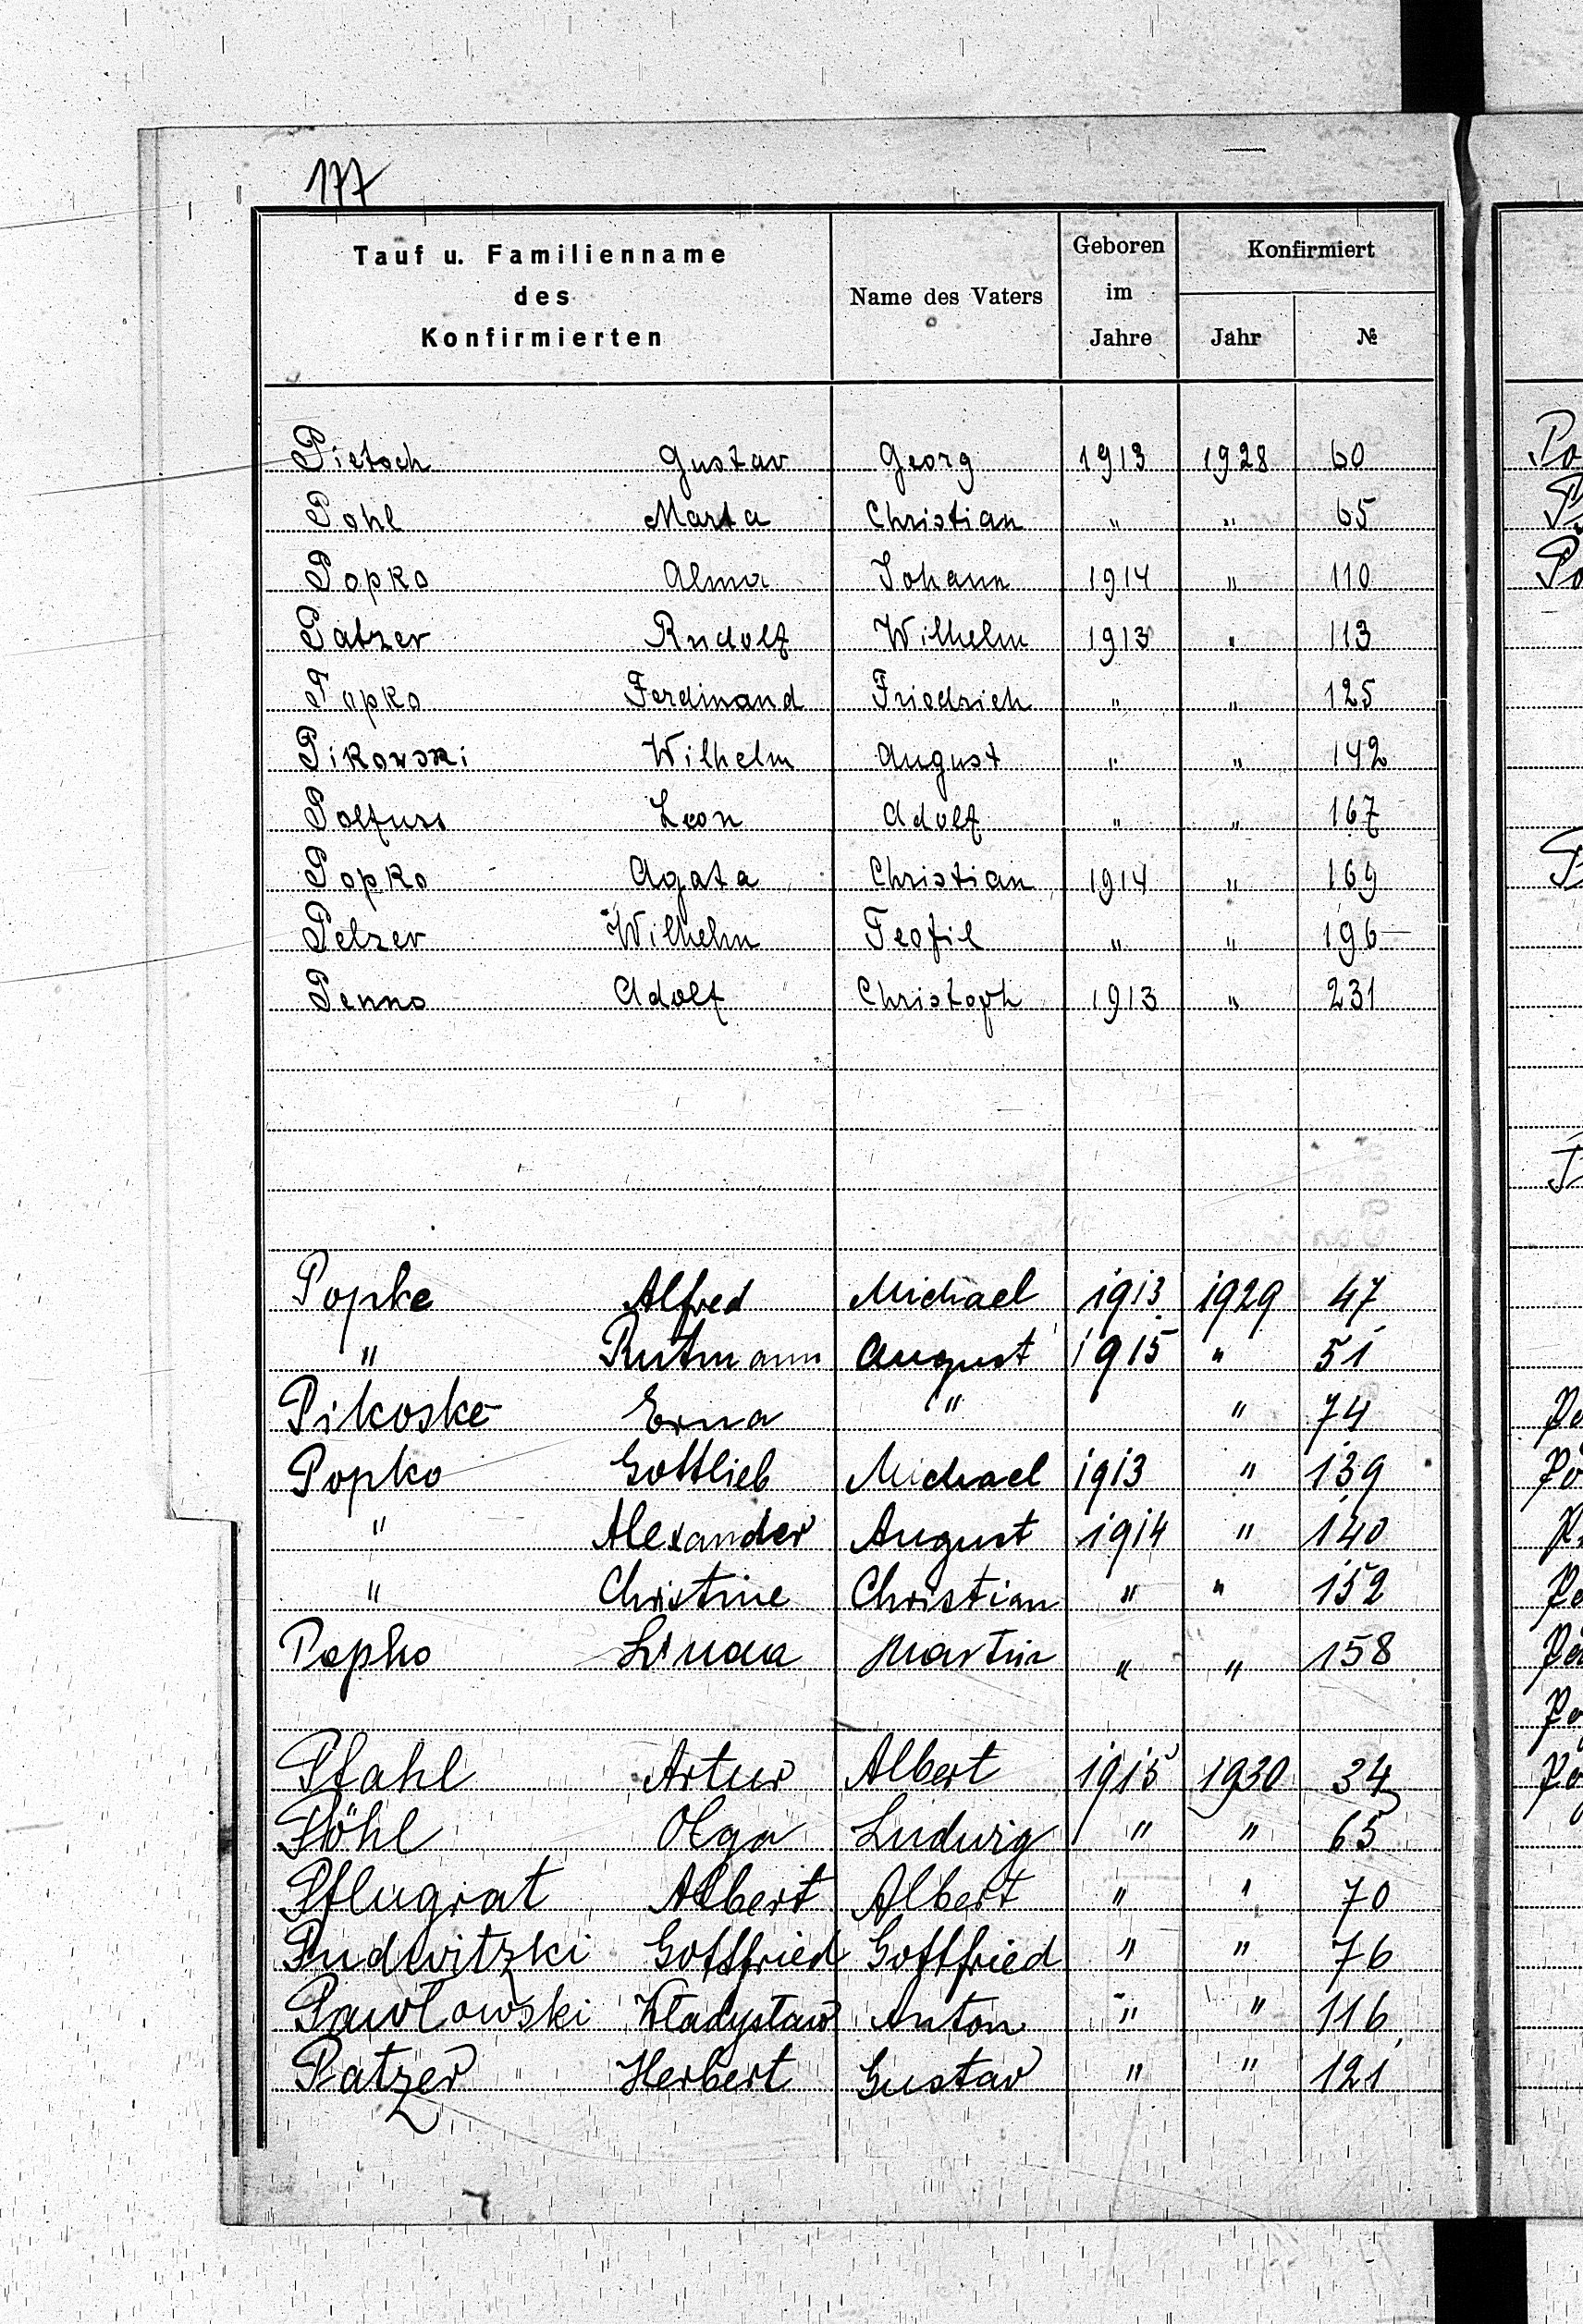 177
Tauf u. Familienname des Konfirmierten Name des Vaters Geboren im Jahre Konfirmiert Jahr №
Pietsch Gustav Georg 1913 1928 60
Pohl Marta Christian " " 65
Popko Alma Johann 1914 " 110
Patzer Rudolf Wilhelm 1913 " 113
Popko Ferdinand Friedrich " " 125
Pikowski Wilhelm August " " 142
Polfuss Leon Adolf " " 167
Popko Agata Christian 1914 " 169
Pelzer Wilhelm Teofil " " 196
Penno Adolf Christoph 1913 " 231
Popke Alfred Michael 1913 1929 47
" Rutmann August 1915 " 51
Pikoske Erna " " 74
Popko Gottlieb Michael 1913 " 139
" Alexander August 1914 " 140
" Christine Christian " " 152
Popko Linda Martin " " 158
Pfahl Artur Albert 1915 1930 34
Pöhl Olga Ludwig " " 65
Pflugrat Albert Albert " " 70
Pudwitzki Gottfried Gottfried " " 76
Pawłowski Władysław Anton " " 116
Patzer Herbert Gustav " " 121